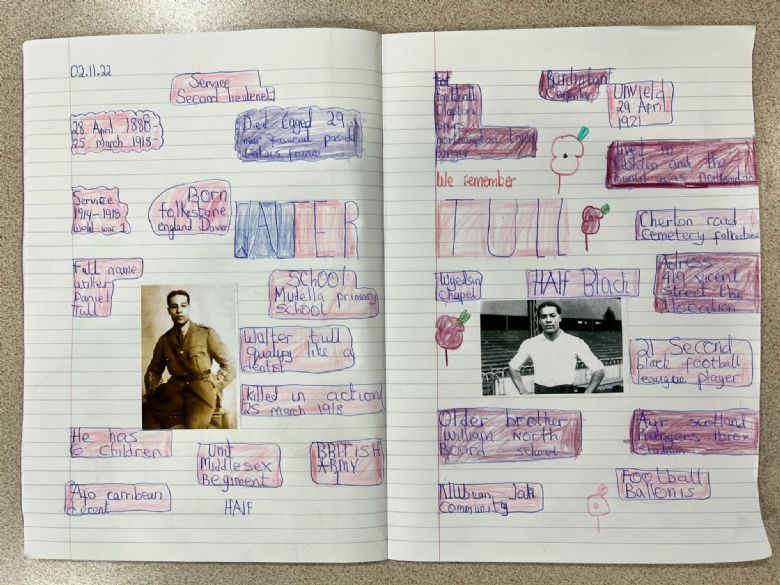 02.11.22
Service
Second lieutenent
28 April 1888
25 March 1918
Died aged 29
near
france
Service
1914-1918
World war 1
Born
folkestone
england Dover
WALTER
Full name
Walter
Daniel
Tull
School
Mudella primary
school
Walter tull
qualifys like a
dentist
killed in action
25 March 1918
He has
6 children
Unit
Middlesex
Regiment
BRITISH
ARMY
Afo carribean
decent
HAlF
football
Clapton
northampton town
Ranger
Unvield
29 April
1921
We remember
live in
and the
was northampton
TULL
Cherton road
Cemetery folkestone
chapel
HAlF Black
Adress
419 vicent
street the
location
21 Second
black football
league player
Older brother
William North
Board school
Ayr scotland
Rangers Ibrox
Stadium
NUbian Jak
Community
Football
Ballonis